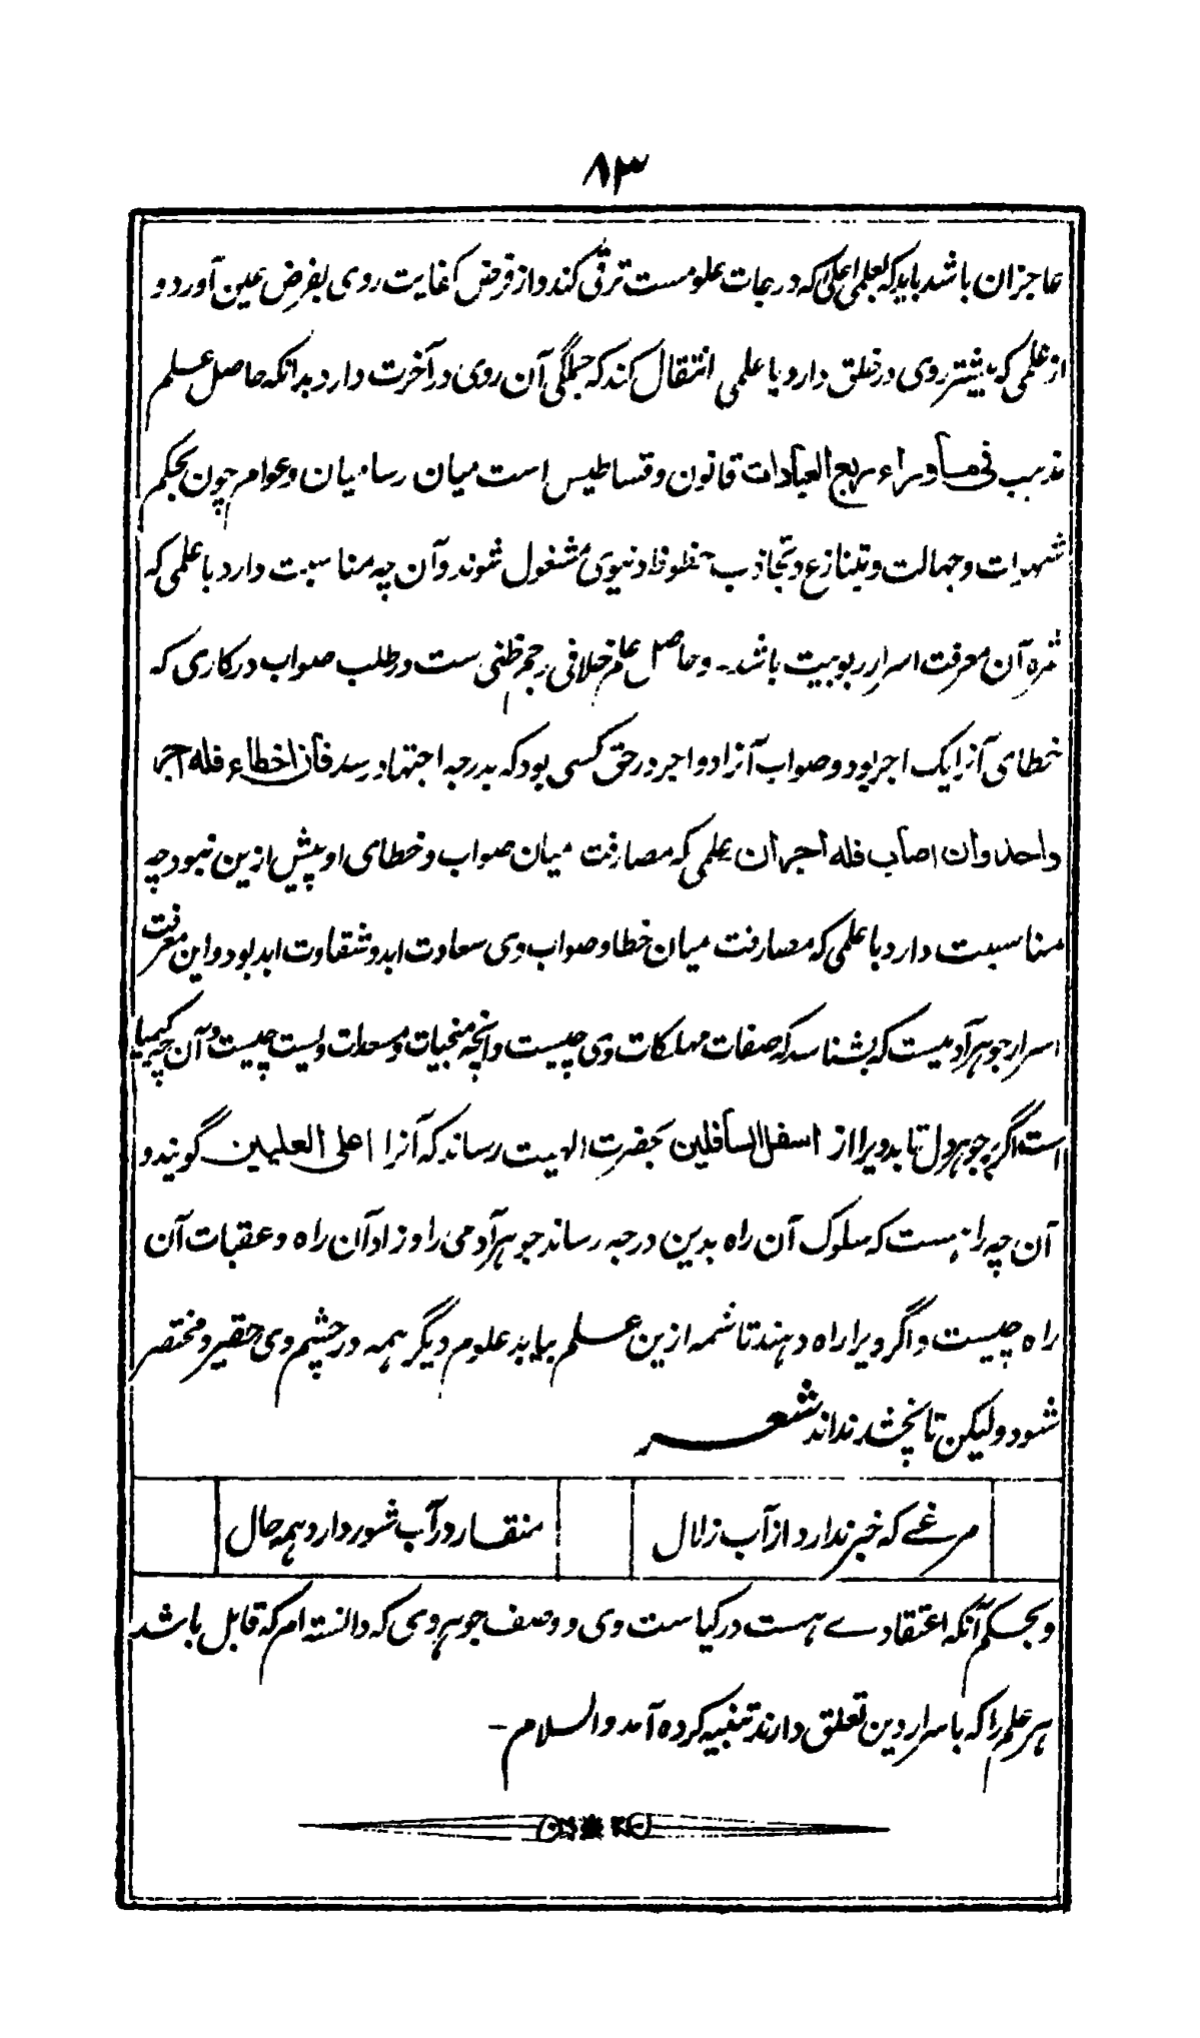 ۸۳
عاجزان باشد باید که بعلمی اعلی که درجات علومست ترقی کند و از فرض کفایت روی بفرض عین آورد و
از علمی که بیشتر روی در خلق دارد با علمی انتقال کند که جملگی آن روی در آخرت دارد بدانکه حاصل علم
مذهب فی ما وراء ربع العبادات قانون و قسا طیس است میان رسا میان و عوام چون بحکم
شهوات و جهالت و تنازع و تجاذب حظوظ دنیوی مشغول شوند و آن چه مناسبت دارد با علمی که
ثمره آن معرفت اسرار ربوبیت باشد ۔ و حاصل علم خلافی رجم ظنی ست در طلب صواب در کاری که
خطای آنرا یک اجر بود و صواب آنرا دو اجر در حق کسی بود که بدرجه اجتهاد رسد فان اخطاء فله اجر
واحد وان اصاب فله اجران علمی که مصارفت میان صواب و خطای او پیش ازین نبود چه
مناسبت دارد با علمی که مصارفت میان خطا و صواب وی سعادت ابد و شقاوت ابد بود و این معرفت
اسرار جوهر آدمیست که بشناسد که صفات مهلکات وی چیست وانچه منجیات و مسعدات ویست چیست و آن چه کیمیا
است اگر بر جوهر دل تابد ویرا از اسفل السافلین بحضرت الهیت رساند که آنرا اعلی العلیین گویند و
آن چه راهست که سلوک آن راه بدین درجه رساند جوهر آدمی را و زاد آن راه و عقبات آن
راه چیست و اگر ویرا راه دهند تا شمه ازین علم بیابد علوم دیگر همه در چشم وی حقیر و مختصر
شود ولیکن تا نچشد نداند شعر
مرغے که خبر ندارد از آب زلال
منقار در آب شور دارد همه حال
و بحکم آنکه اعتقادے هست در کیاست وی و وصف جوهر وی که دانسته ام که قابل باشد
هر علم را که با سرار دین تعلق دارند تنبیه کرده آمد والسلام –